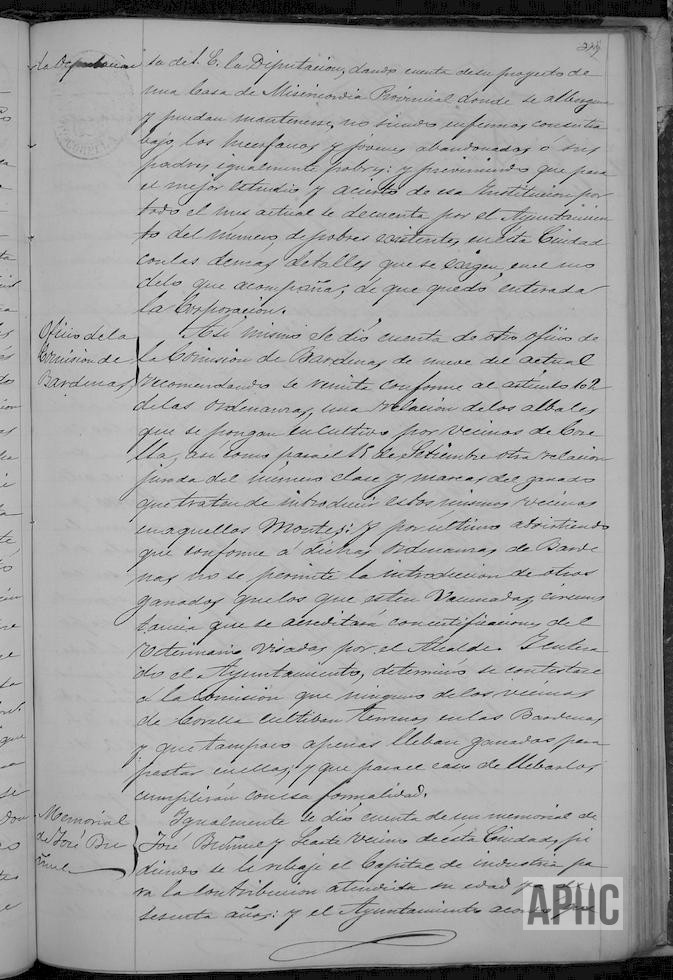 la Diputación
ta de S. E. la Diputacion, dando cuenta de su proyecto de
una Casa de Misericordia Provincial donde se alberguen
y puedan mantenerse, no siendo enfermos
bajo los huerfanos y jóvenes abandonados o sus
padres igualmente pobres: y previniendo que para
el mejor estudio y acierto de esa Institucion por
todo el mes actual se de cuenta por el Ayuntamien
to del numero de pobres existentes en esta Ciudad
con los demas detalles que se exigen en el mo
delo que acompaña; de que quedó enterada
la Corporacion.
Oficio de la
Comision de
Bardenas
Asi mismo se dió cuenta de otro oficio de
la Comision de Bardenas de nueve del actual
recomendando se remita conforme al articulo 102
de las ordenanzas, una relacion de los albales
que se pongan en cultivo por vecinos de Core
lla, asi como para el 15 de Setiembre otra relacion
jurada del número clase y marcas del ganado
que traten de introducir estos mismos vecinos
en aquellos Montes: y por ultimo advirtiendo
que conforme á dichas ordenanzas de Barde
nas no se permite la introduccion de otros
ganados que los que esten Vacunados, circuns
tancia que se acreditará con certificaciones del
Veterinario visadas por el Alcalde. Entera
do el Ayuntamiento, determinó se contestase
á la Comision que ninguno de los vecinos
de Corella cultiban terrenos en las Bardenas
y que tampoco apenas lleban ganados para
pastar en ellas; y que para el caso de llebarlos
cumplirán con esa formalidad.
Memorial
de José Bu
ñuel
Igualmente se dió cuenta de un memorial de
José Buñuel y vecino de ésta Ciudad, pi
diendo se le rebaje el Capital de industria pa
ra la contribucion atendida su edad ya de
sesenta años: y el Ayuntamiento acordó que
APHC